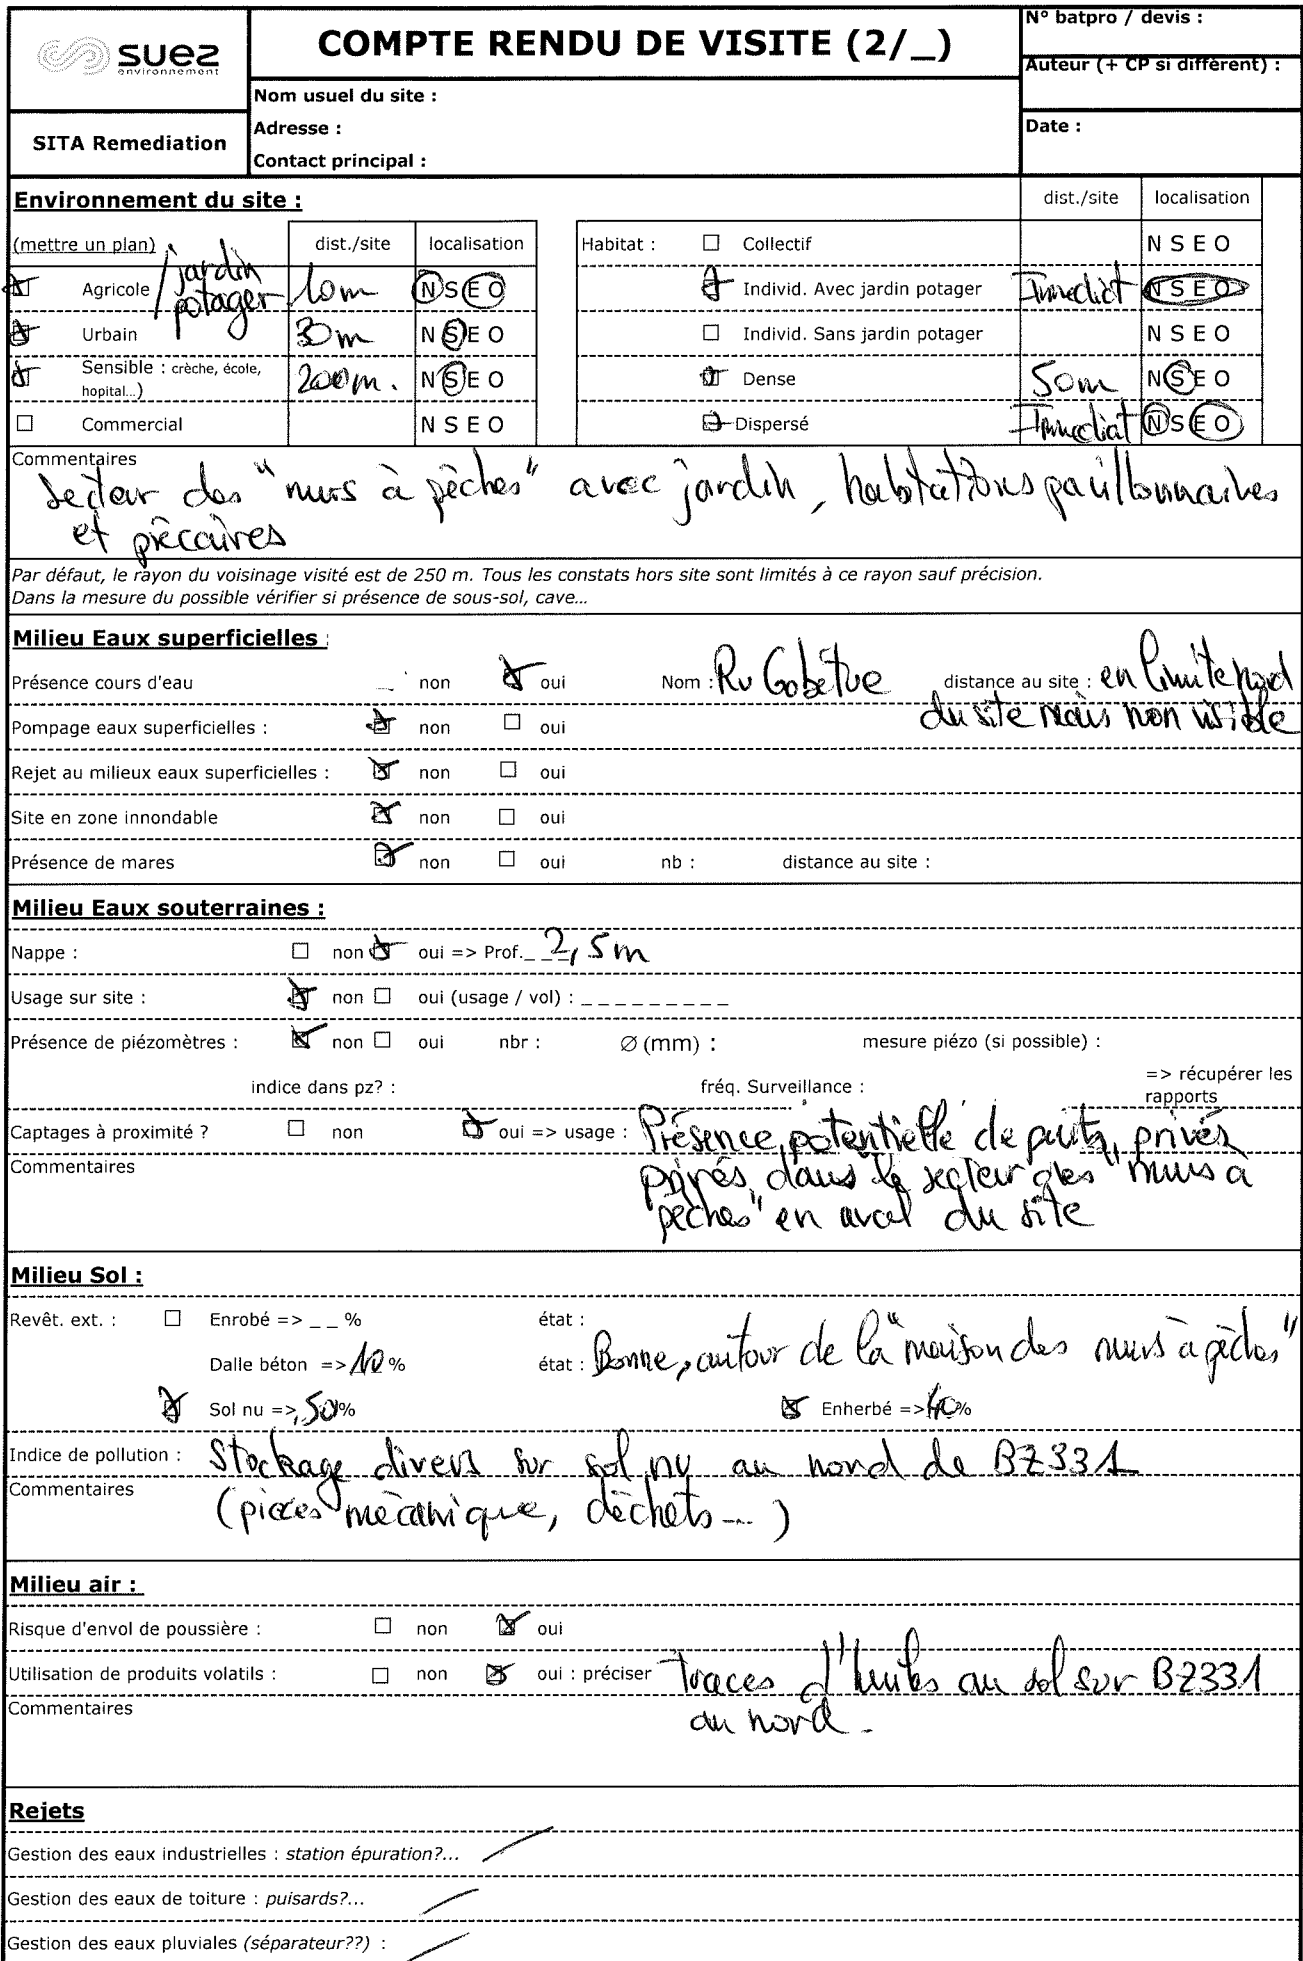 suez
environnement
SITA Remediation
COMPTE RENDU DE VISITE (2/_)
Nom usuel du site :
Adresse :
Contact principal :
N° batpro / devis :
Auteur (+ CP si différent) :
Date :
Environnement du site :
dist./site localisation
(mettre un plan) dist./site localisation Habitat : ☐ Collectif N S E O
☒ Agricole / jardin potager 10m N S E O ☒ Individ. Avec jardin potager Immediat N S E O
☒ Urbain 30m N S E O ☐ Individ. Sans jardin potager N S E O
☒ Sensible : crèche, école, hopital...) 200m. N S E O ☒ Dense 50m N S E O
☐ Commercial N S E O ☒ Dispersé Immediat N S E O
Commentaires
Secteur des "murs à pêches" avec jardin, habitations pavillonnaires
et précaires
Par défaut, le rayon du voisinage visité est de 250 m. Tous les constats hors site sont limités à ce rayon sauf précision.
Dans la mesure du possible vérifier si présence de sous-sol, cave...
Milieu Eaux superficielles :
Présence cours d'eau non ☒ oui Nom : Ru Gobétue distance au site : en limite nord
du site mais non visible
Pompage eaux superficielles : ☒ non ☐ oui
Rejet au milieux eaux superficielles : ☒ non ☐ oui
Site en zone innondable ☒ non ☐ oui
Présence de mares ☒ non ☐ oui nb : distance au site :
Milieu Eaux souterraines :
Nappe : ☐ non ☒ oui => Prof._ _ _ 2,5m
Usage sur site : ☒ non ☐ oui (usage / vol) : _ _ _ _ _ _ _ _ _
Présence de piézomètres : ☒ non ☐ oui nbr : Ø (mm) : mesure piézo (si possible) :
indice dans pz? : fréq. Surveillance : => récupérer les
rapports
Captages à proximité ? ☐ non ☒ oui => usage : Présence potentielle de puits privés
Commentaires
privés dans le secteur des "murs à
pêches" en aval du site
Milieu Sol :
Revêt. ext. : ☐ Enrobé => _ _ % état :
Dalle béton => 10 % état : Bonne, autour de la "maison des murs à pêches"
☒ Sol nu => 50% ☒ Enherbé => 40%
Indice de pollution : Stockage divers sur sol nu au nord de BZ331
Commentaires
(pièces mécanique, déchets...)
Milieu air :
Risque d'envol de poussière : ☐ non ☒ oui
Utilisation de produits volatils : ☐ non ☒ oui : préciser traces d'huiles au sol sur BZ331
Commentaires
au nord.
Rejets
Gestion des eaux industrielles : station épuration?...
Gestion des eaux de toiture : puisards?...
Gestion des eaux pluviales (séparateur??) :